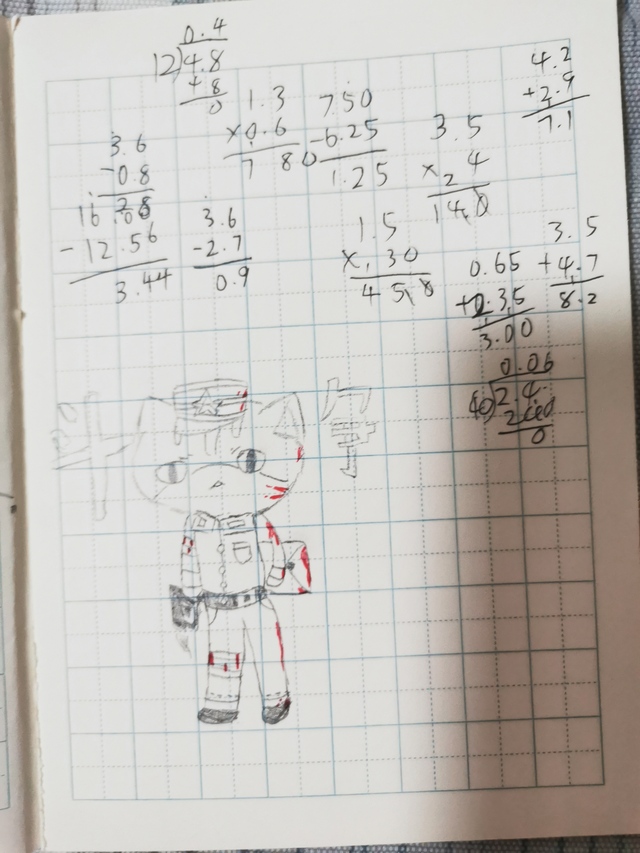 0.4
12)4.8
48
0
3.6
-0.8
2.8
16.00
-12.56
3.44
1.3
×0.6
7 8
3.6
-2.7
0.9
7.50
-6.25
1.25
1.5
×.30
45.0
3.5
×24
140
4.2
+2.9
7.1
3.5
+4.7
8.2
0.65
+2.35
3.00
0.06
40)2.4
240
0